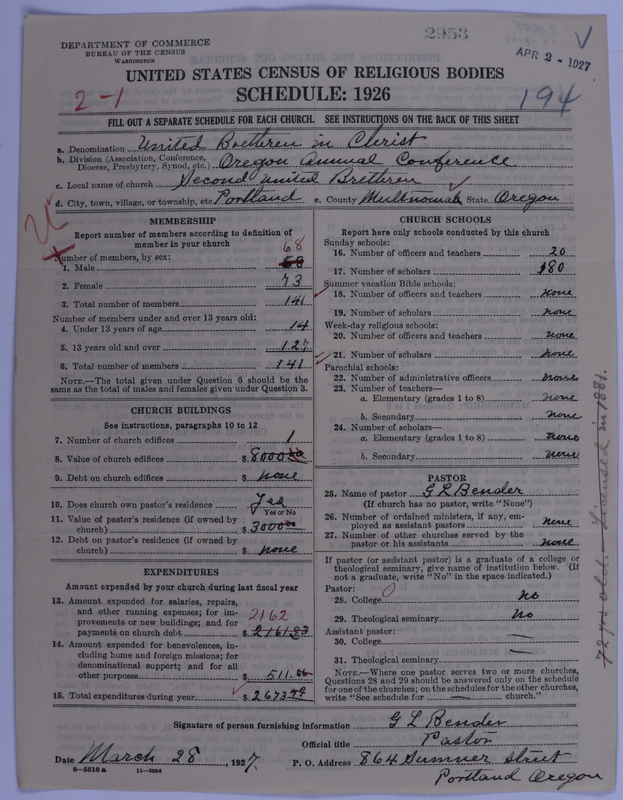 2953
DEPARTMENT OF COMMERCE
BUREAU OF THE CENSUS
WASHINGTON
APR 2 - 1927
UNITED STATES CENSUS OF RELIGIOUS BODIES
SCHEDULE: 1926
2-1
194
FILL OUT A SEPARATE SCHEDULE FOR EACH CHURCH. SEE INSTRUCTIONS ON THE BACK OF THIS SHEET
a. Denomination United Brethren in Christ
b. Division (Association, Conference, Diocese, Presbytery, Synod, etc.) Oregon Annual Conference
c. Local name of church Second United Brethren
d. City, town, village, or township, etc. Portland e. County Multnomah State Oregon
MEMBERSHIP
Report number of members according to definition of
member in your church
Number of members, by sex: 68
1. Male 68
2. Female 73
3. Total number of members 141
Number of members under and over 13 years old:
4. Under 13 years of age 14
5. 13 years old and over 127
6. Total number of members 141
NOTE.—The total given under Question 6 should be the
same as the total of males and females given under Question 3.
CHURCH BUILDINGS
See instructions, paragraphs 10 to 12
7. Number of church edifices 1
8. Value of church edifices $ 8000 00
9. Debt on church edifices $ none
10. Does church own pastor's residence Yes
Yes or No
11. Value of pastor's residence (if owned by
church) $ 3000 00
12. Debt on pastor's residence (if owned by
church) $ none
EXPENDITURES
Amount expended by your church during last fiscal year
13. Amount expended for salaries, repairs,
and other running expenses; for im-
provements or new buildings; and for 2162
payments on church debt $ 2161.83
14. Amount expended for benevolences, in-
cluding home and foreign missions; for
denominational support; and for all
other purposes $ 511.66
15. Total expenditures during year $ 2673.49
CHURCH SCHOOLS
Report here only schools conducted by this church
Sunday schools:
16. Number of officers and teachers 20
17. Number of scholars 180
Summer vacation Bible schools:
18. Number of officers and teachers none
19. Number of scholars none
Week-day religious schools:
20. Number of officers and teachers none
21. Number of scholars none
Parochial schools:
22. Number of administrative officers none
23. Number of teachers—
a. Elementary (grades 1 to 8) none
b. Secondary none
24. Number of scholars—
a. Elementary (grades 1 to 8) none
b. Secondary none
PASTOR
25. Name of pastor G L Bender
(If church has no pastor, write "None")
26. Number of ordained ministers, if any, em-
ployed as assistant pastors none
27. Number of other churches served by the
pastor or his assistants none
If pastor (or assistant pastor) is a graduate of a college or
theological seminary, give name of institution below. (If
not a graduate, write "No" in the space indicated.)
Pastor:
28. College no
29. Theological seminary no
Assistant pastor:
30. College —
31. Theological seminary —
NOTE.—Where one pastor serves two or more churches,
Questions 28 and 29 should be answered only on the schedule
for one of the churches; on the schedules for the other churches,
write "See schedule for — church."
72 yrs old. Licensed in 1881.
Signature of person furnishing information G L Bender
Official title Pastor
Date March 28, 1927. P. O. Address 864 Sumner Street
Portland Oregon
6—5518 a 11—8684